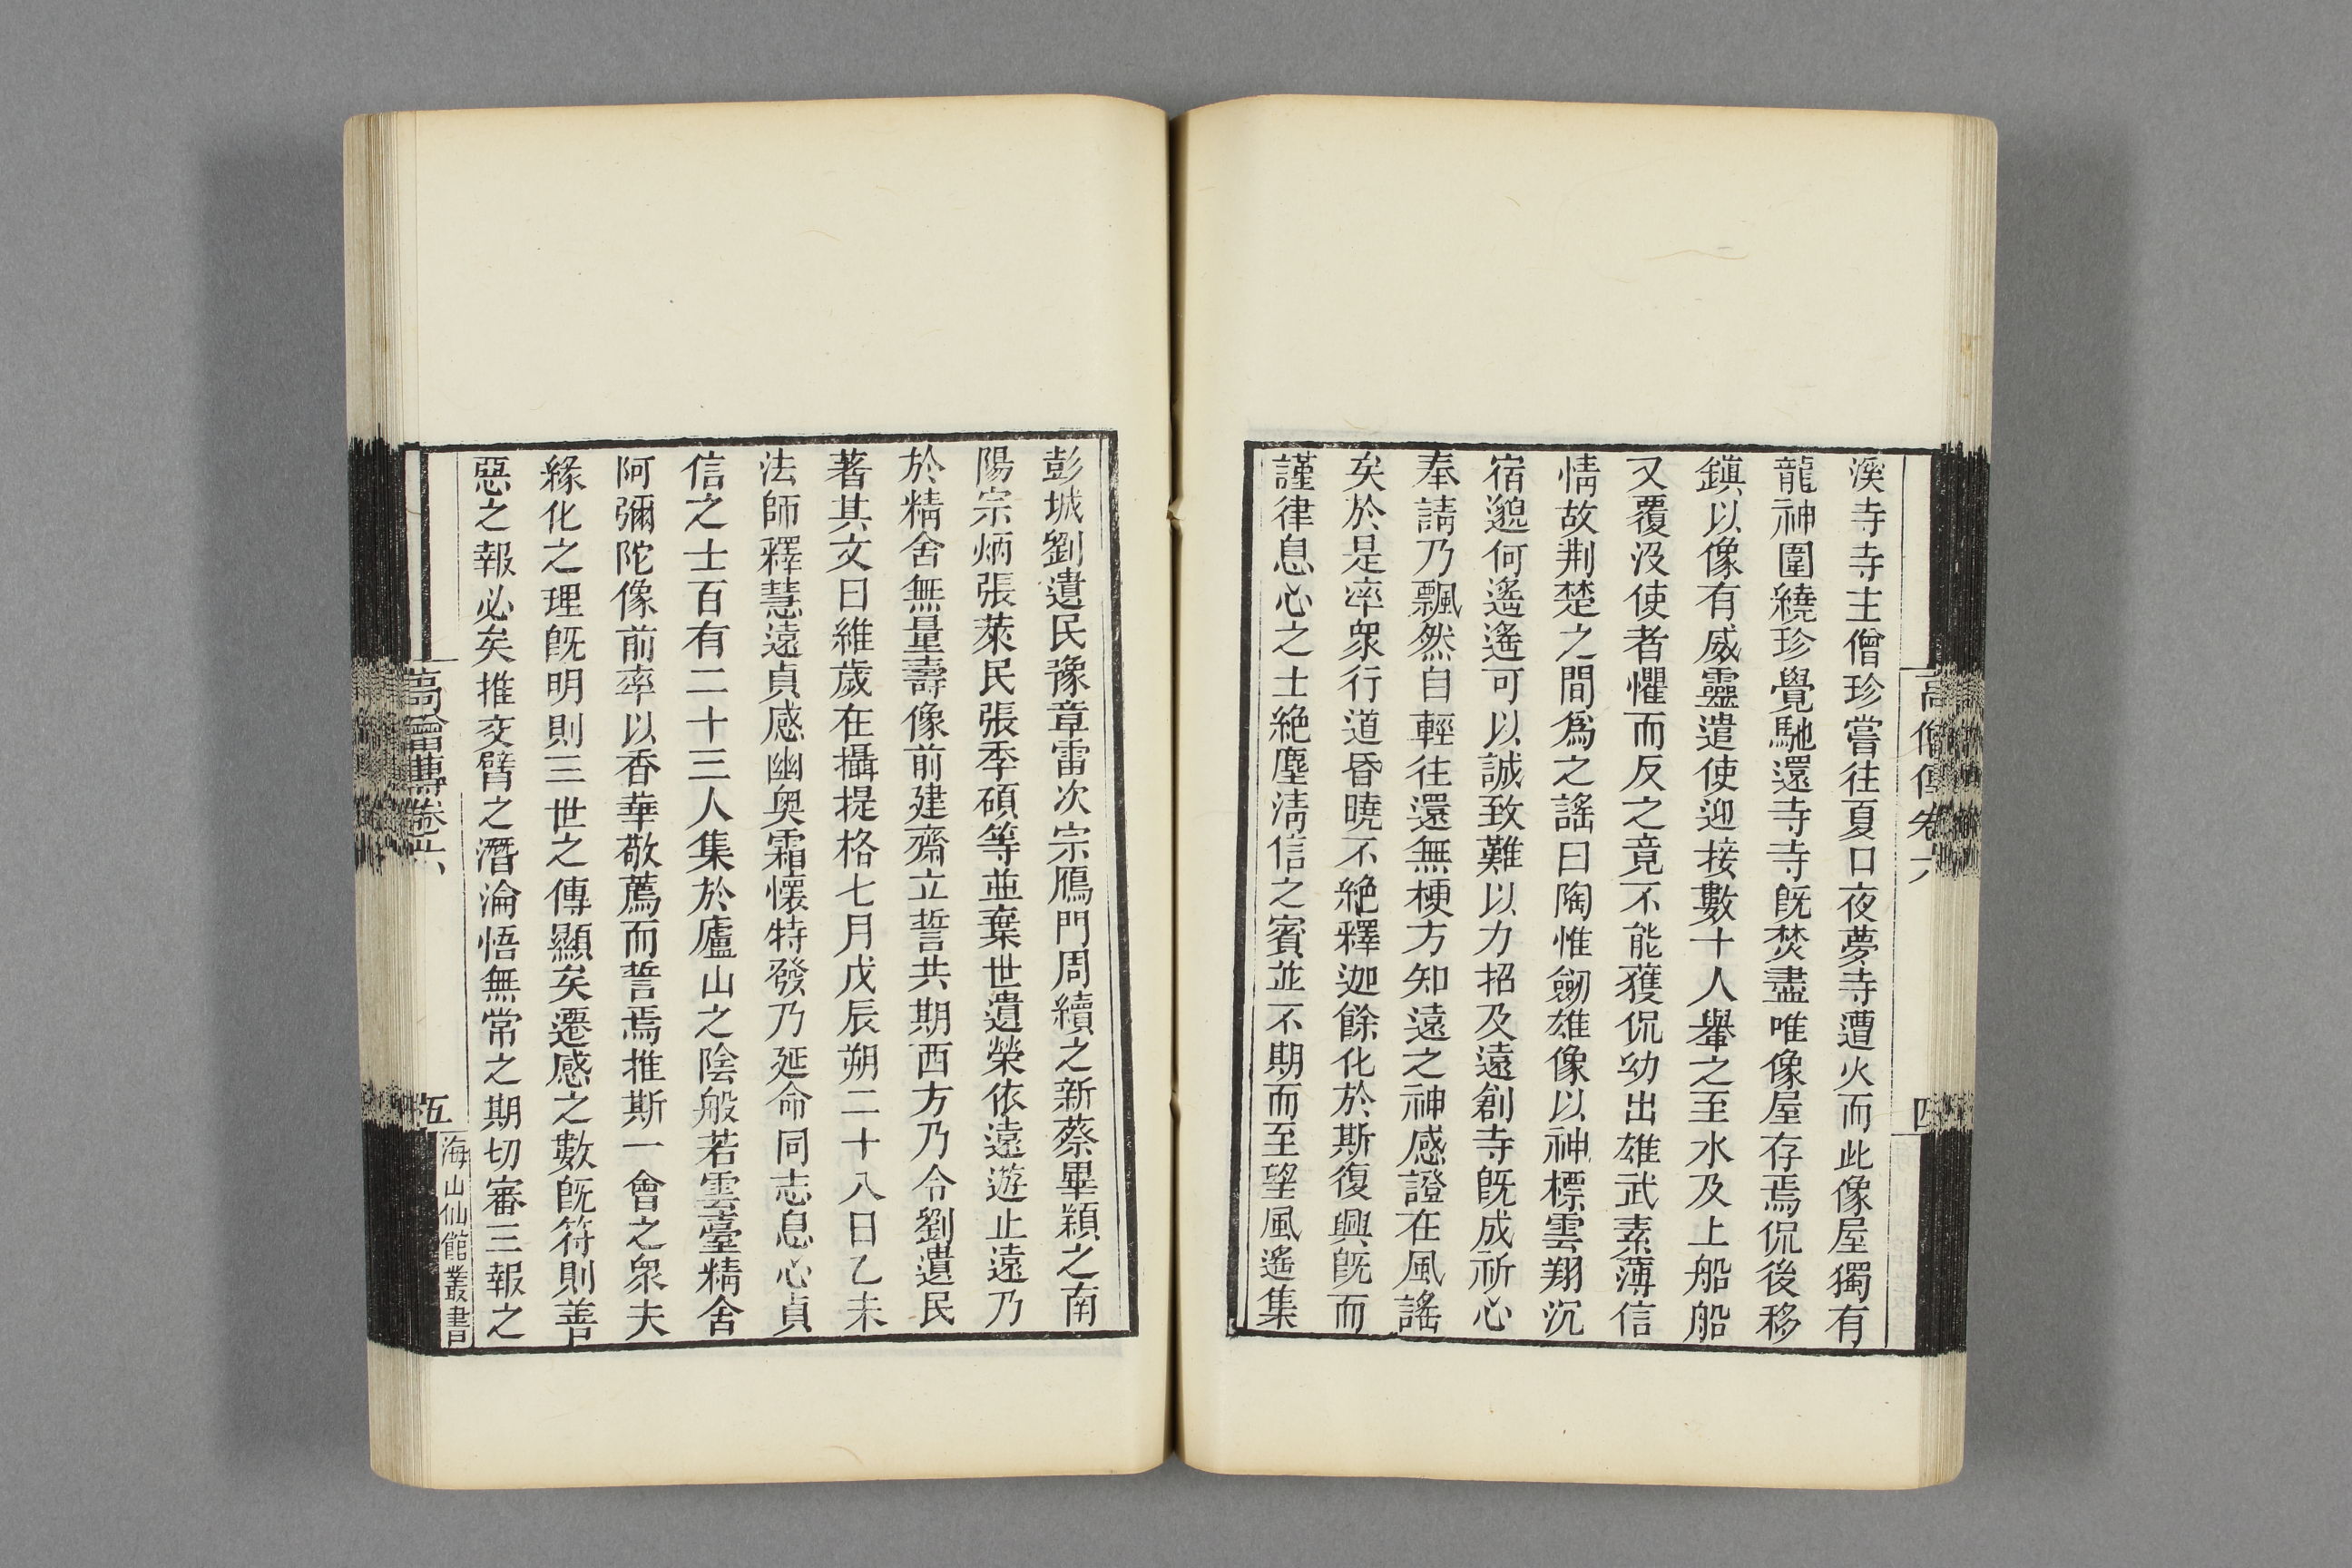 高僧傳卷六
四
溪寺寺主僧珍嘗往夏口夜夢寺遭火而此像屋獨有
龍神圍繞珍覺馳還寺寺旣焚盡唯像屋存焉侃後移
鎭以像有威靈遣使迎接數十人轝之至水及上船船
又覆没使者懼而反之竟不能獲侃幼出雄武素薄信
情故荆楚之間爲之謠曰陶惟劒雄像以神標雲翔沉
宿邈何遙遙可以誠致難以力招及遠創寺旣成祈心
奉請乃飄然自輕往還無梗方知遠之神感證在風謠
矣於是率衆行道昏曉不絶釋迦餘化於斯復興旣而
謹律息心之士絶塵淸信之賓並不期而至望風遙集
彭城劉遺民豫章雷次宗鴈門周續之新蔡畢穎之南
陽宗炳張萊民張季碩等並棄世遺榮依遠遊止遠乃
於精舍無量壽像前建齋立誓共期西方乃令劉遺民
著其文曰維歲在攝提格七月戊辰朔二十八日乙未
法師釋慧遠貞感幽奧霜懷特發乃延命同志息心貞
信之士百有二十三人集於廬山之陰般若雲臺精舍
阿彌陀像前率以香華敬薦而誓焉推斯一會之衆夫
緣化之理旣明則三世之傳顯矣遷感之數旣符則善
惡之報必矣推交臂之潛淪悟無常之期切審三報之
高僧傳卷六
五
海山仙館叢書